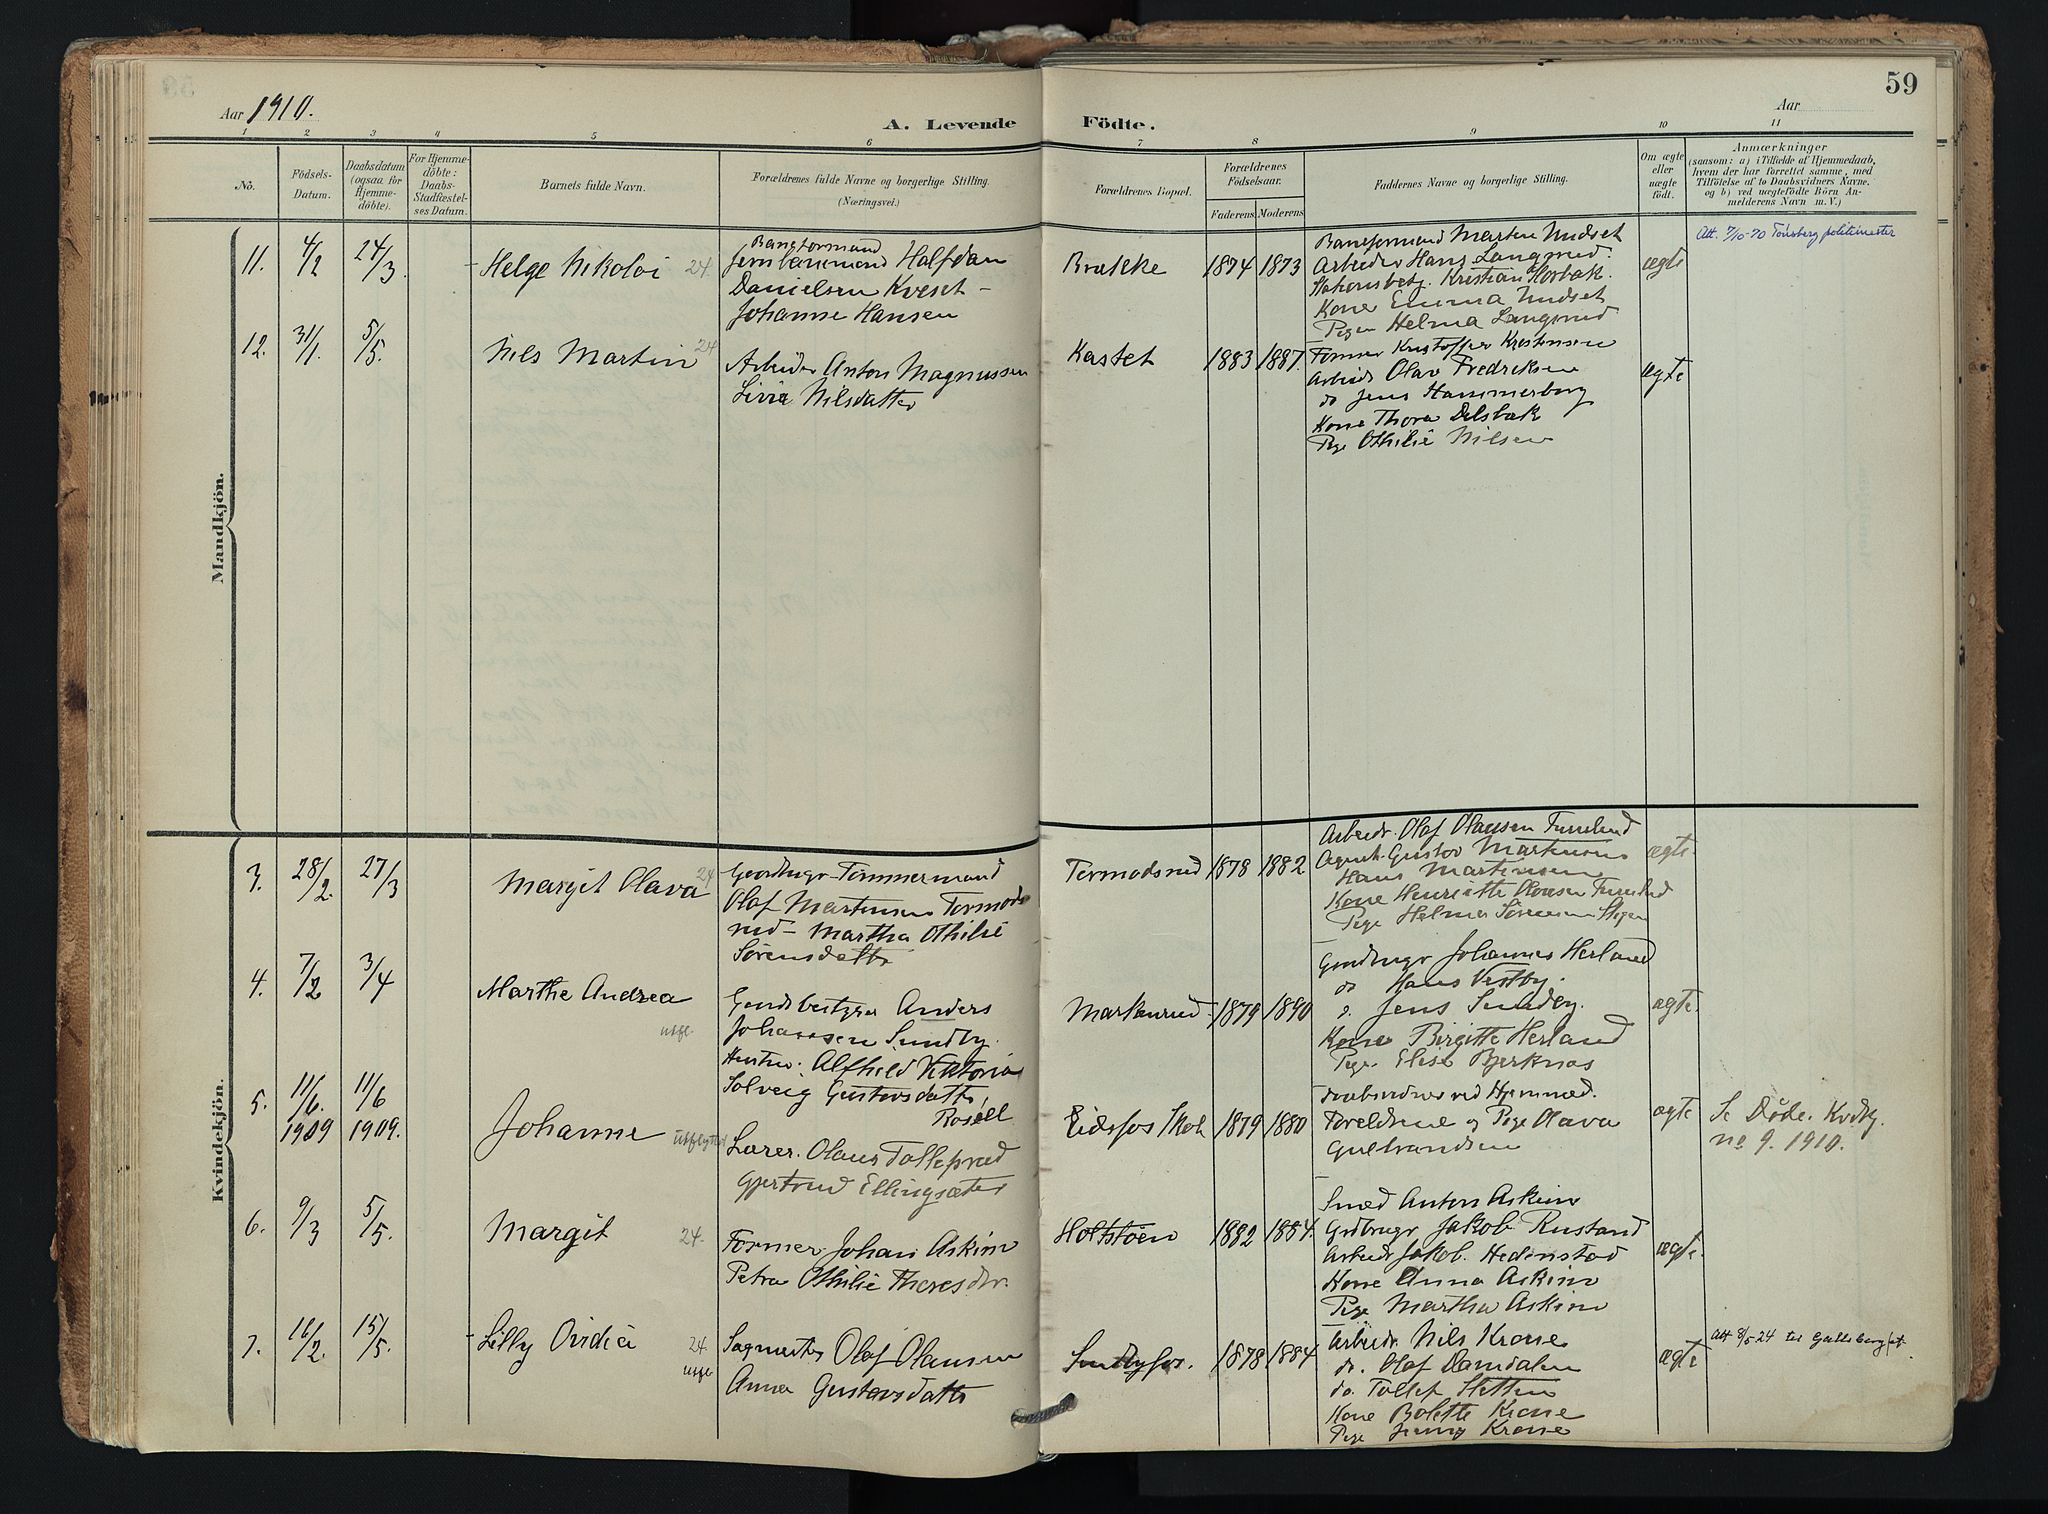 59
Aar 1910.
A. Levende Födte.
Aar
1 2 3 4 5 6 7 8 9 10 11
No.
Födsels-Datum.
Daabsdatum (ogsaa for Hjemme-döbte).
For Hjemme-döbte: Daabs-Stadfæstel-ses Datum.
Barnets fulde Navn.
Forældrenes fulde Navne og borgerlige Stilling.
(Næringsvei.)
Forældrenes Bopæl.
Forældrenes Födselsaar.
Faderens Moderens
Faddernes Navne og borgerlige Stilling.
Om ægte eller uægte födt.
Anmærkninger
(saasom: a) i Tilfælde af Hjemmedaab,
hvem der har forrettet samme, med
Tilföielse af to Daabsvidners Navne.
og b) ved uægtefödte Börn An-
melderens Navn m. V.)
Mandkjön.
11. 4/2 24/3. Helge Nikolai 24.
Baneformand
Jernbanemand Halfdan
Danielsen Kveset -
Johanne Hansen
Brække 1874 1873
Baneformand Marten Undset
Arbeider Hans Langerud.
Stationsbetj. Kristian Horbæk.
Kone Emma Undset
Pige Helma Langerud
ægte
Att. 7/10-70 Tønsberg politimester
12. 31/1. 5/5. Nils Martin 24
Arbeider Anton Magnussen
Livia Nilsdatter
Kastet 1883 1887.
Former Kristoffer Kristensen
Arbeid. Olav Fredriksen
do Jens Hammerborg
Kone Thora Dalsbæk
Pige Othilie Nilsen
ægte
Kvindekjön.
3. 28/2. 27/3 Margit Olava 24
Gaardbrugr-Tømmermand
Olaf Martinsen Tormods
rud - Martha Othilie
Sørensdatter
Tormodsrud 1878 1882
Arbeidr. Olaf Olausen Furulund
Agent. Gustav Martinsen
Hans Martinsen
Kone Henriette Olausen Furulund
Pige Helma Sørensen Stigen
ægte
4. 7/2 3/4 Marthe Andrea utfl.
Gaardsbestyrer Anders
Johannsen Sundby.
Hustru: Alfhild Viktoria
Solveig Gustavsdatter
Rosell
Markerud 1879 1890
Gaardbrugr Johannes Herland
do Hans Vestby.
d. Jens Sundby.
Kone Birgitte Herland
Pige. Elise Bjerknæs
ægte.
5. 11/6. 1909 11/6 1909. Johanne utflyttet
Lærer. Olaus Tollefsrud
Gjertrud Ellingsæter
Eidsfos Skole 1879 1880
Daabsvidner ved Hjemmed.
Foreldrene og Pige Olava
Gulbrandsen
ægte
Se Døde. Kvdkj.
no 9. 1910.
6. 9/3 5/5. Margit 24.
Former Johan Askim
Petra Othilie Theresdtr.
Holtstøen 1882 1884.
Smed Anton Askim
Grdbrugr Jakob Rustand
Arbeidr Jakob. Hedenstad
Kone Anna Askim
Pige Martha Askim
ægte.
7. 11/2. 15/5. Lilly Ovidia 24. utfl
Sagmester Olaf Olausen
Anna Gustavsdatter
Sundbyfos. 1878 1884
Arbeidr. Nils Krone
do. Olaf Damdalen
do. Tollef Sletten
Kone Bolette Krone
Pige Jenny Krone
ægte
Att 8/5-24 til